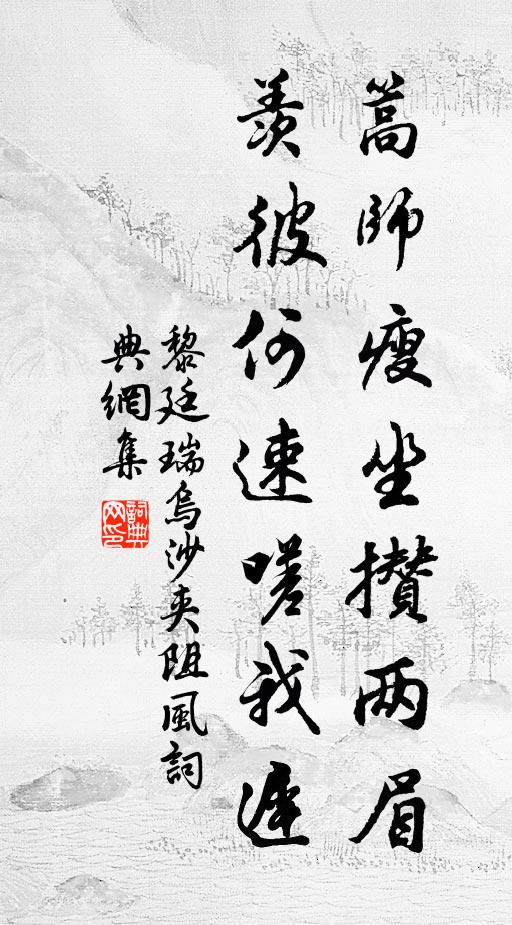 篙師瘦坐攢两眉
羨彼何速嗟我遲
黎廷瑞烏沙夹阻風詞
典網集
詞典
网印